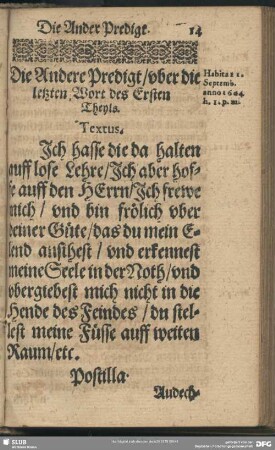 Die Ander Predigt. 14
Die Andere Predigt/ vber die
letzten Wort des Ersten
Theyls.
Habita 11.
Septemb.
anno 1604.
h. 1. p. m.
Textus.
Ich hasse die da halten
auff lose Lehre/ Ich aber hof-
fe auff den HErrn/ Ich frewe
mich/ vnd bin frölich vber
deiner Güte/ das du mein E-
lend ansihest/ vnd erkennest
meine Seele in der Noth/ vnd
vbergiebest mich nicht in die
Hende des Feindes/ du stel-
lest meine Füsse auff weiten
Raum/ etc.
Postilla.
Andech-
SLUB
DFG